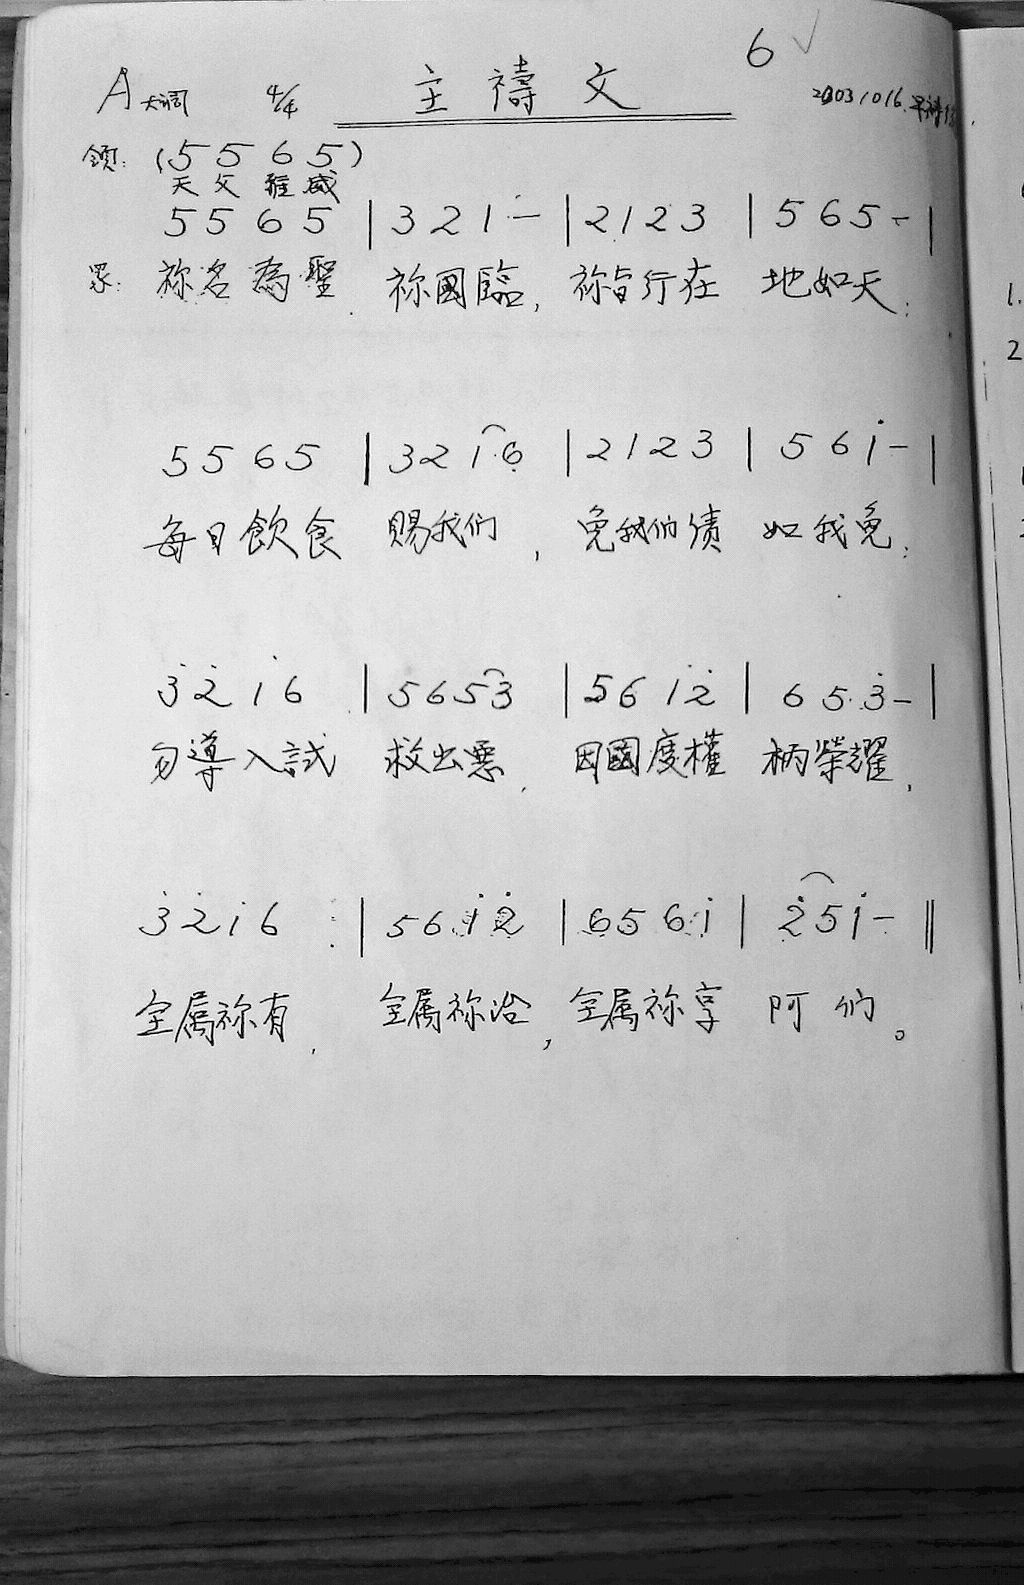 6 ✓
A大调 4/4 主禱文 20031016.早禱
领: (5 5 6 5)
天父雅威
5 5 6 5 | 3 2 1 - | 2 1 2 3 | 5 6 5 - |
眾: 祢名為聖. 祢國臨, 祢旨行在 地如天;
5 5 6 5 | 3 2 1·6 | 2 1 2 3 | 5 6 i - |
每日飲食 賜我们, 免我们债 如我免;
3̇ 2̇ i 6 | 5 6 5 3 | 5 6 i 2̇ | 6 5·3̇ - |
勿導入試 救出惡, 因國度權 柄榮耀,
3̇ 2̇ i 6 | 5 6 i 2̇ | 6 5 6 i | 2̇ 5 i - ‖
全属祢有, 全属祢治, 全属祢享 阿们。
1.
2